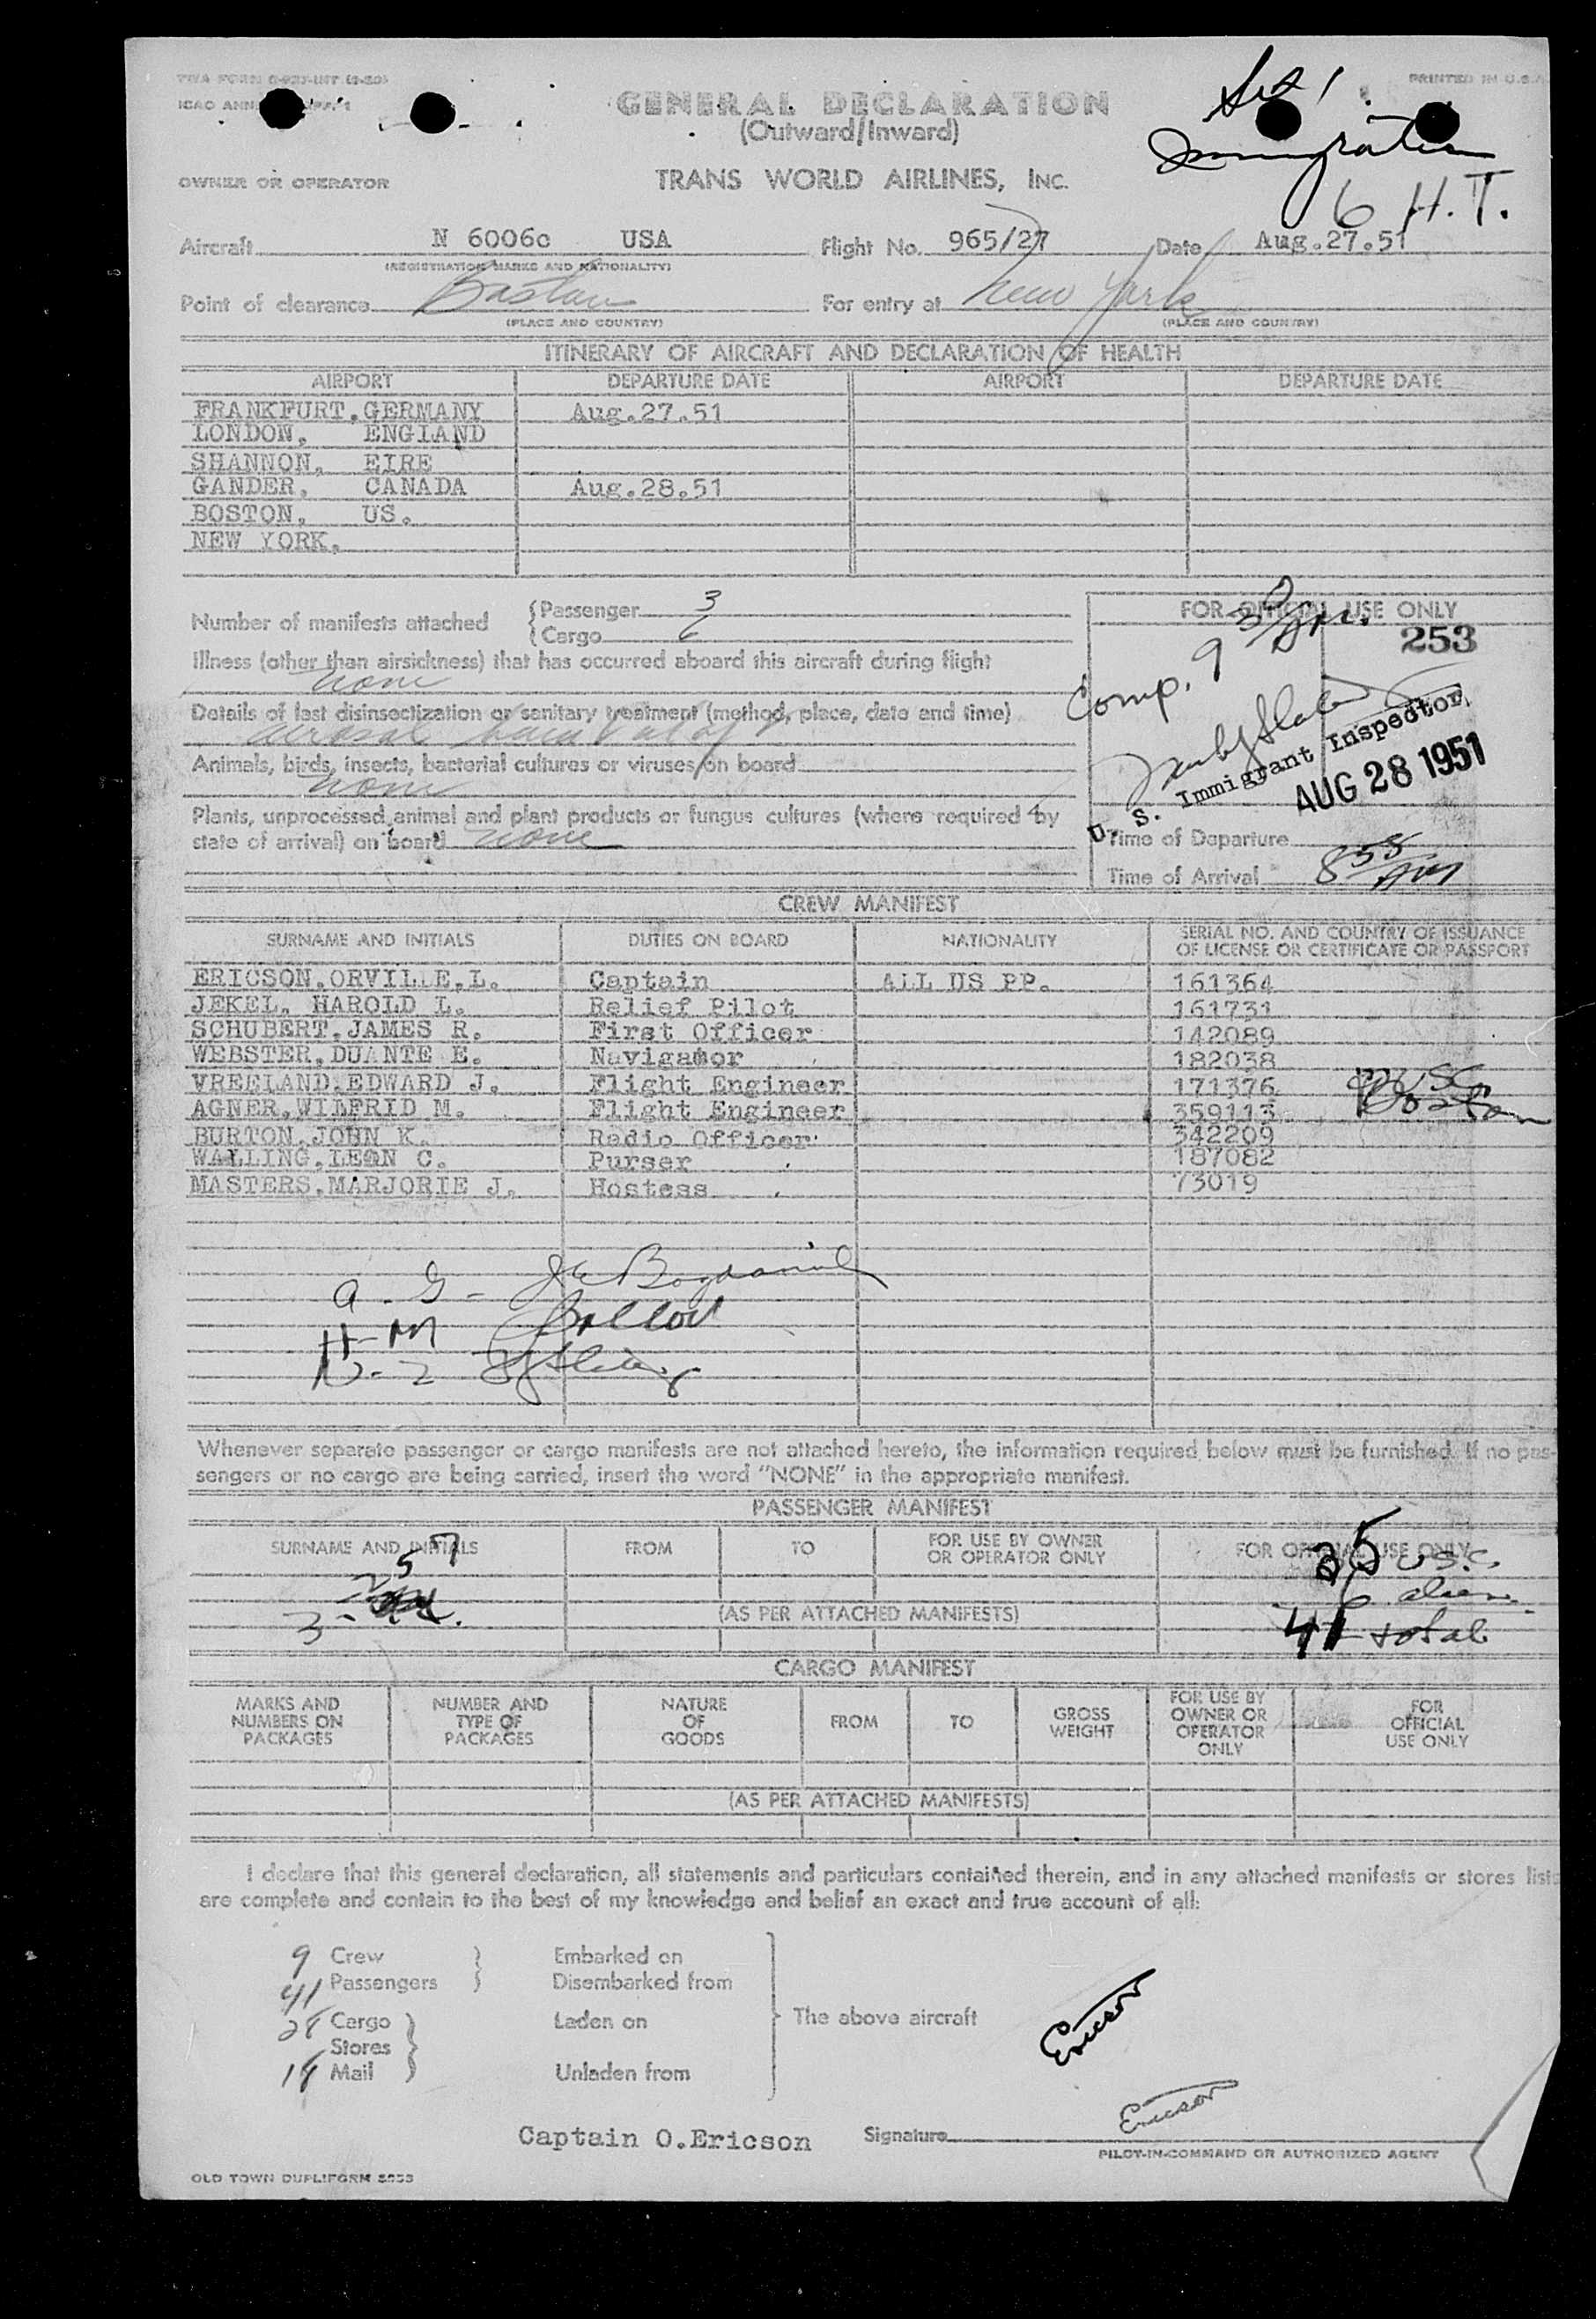 TWA FORM
PRINTED IN U.S.A.
ICAO
GENERAL DECLARATION
(Outward/Inward)
Immigration
OWNER OR OPERATOR
TRANS WORLD AIRLINES, INC.
6 H.T.
Aircraft N 6006c USA Flight No. 965/27 Date Aug.27.51
(REGISTRATION MARKS AND NATIONALITY)
Point of clearance Boston For entry at New York
(PLACE AND COUNTRY) (PLACE AND COUNTRY)
ITINERARY OF AIRCRAFT AND DECLARATION OF HEALTH
AIRPORT DEPARTURE DATE AIRPORT DEPARTURE DATE
FRANKFURT,GERMANY Aug.27.51
LONDON, ENGLAND
SHANNON, EIRE
GANDER, CANADA Aug.28.51
BOSTON, US.
NEW YORK.
Number of manifests attached
Passenger 3
Cargo
FOR OFFICIAL USE ONLY
253
Comp. 9 30
Illness (other than airsickness) that has occurred aboard this aircraft during flight
none
Details of last disinsectization or sanitary treatment (method, place, date and time)
aerosol
Animals, birds, insects, bacterial cultures or viruses on board
none
Plants, unprocessed animal and plant products or fungus cultures (where required by
state of arrival) on board none
U. S. Immigrant Inspector
AUG 28 1951
Time of Departure
Time of Arrival 8 58 AM
CREW MANIFEST
SURNAME AND INITIALS DUTIES ON BOARD NATIONALITY SERIAL NO. AND COUNTRY OF ISSUANCE
OF LICENSE OR CERTIFICATE OR PASSPORT
ERICSON,ORVILLE,L. Captain ALL US PP. 161364
JEKEL, HAROLD L. Relief Pilot 161731
SCHUBERT,JAMES R. First Officer 142089
WEBSTER,DUANTE E. Navigator 182038
VREELAND,EDWARD J. Flight Engineer 171376
AGNER,WILFRID M. Flight Engineer 359113
Boston
BURTON,JOHN K. Radio Officer 342209
WALLING,LEON C. Purser 187082
MASTERS,MARJORIE J. Hostess 73019
A - G -
H - M
N - Z
Whenever separate passenger or cargo manifests are not attached hereto, the information required below must be furnished. If no pas-
sengers or no cargo are being carried, insert the word "NONE" in the appropriate manifest.
PASSENGER MANIFEST
SURNAME AND INITIALS FROM TO FOR USE BY OWNER
OR OPERATOR ONLY
FOR OFFICIAL USE ONLY
35 U.S.C.
6 alien
(AS PER ATTACHED MANIFESTS)
41 total
CARGO MANIFEST
MARKS AND
NUMBERS ON
PACKAGES
NUMBER AND
TYPE OF
PACKAGES
NATURE
OF
GOODS
FROM
TO
GROSS
WEIGHT
FOR USE BY
OWNER OR
OPERATOR
ONLY
FOR
OFFICIAL
USE ONLY
(AS PER ATTACHED MANIFESTS)
I declare that this general declaration, all statements and particulars contained therein, and in any attached manifests or stores lists
are complete and contain to the best of my knowledge and belief an exact and true account of all:
9 Crew Embarked on
41 Passengers Disembarked from
28 Cargo Laden on
Stores
18 Mail Unladen from
The above aircraft
Ericson
Captain O.Ericson Signature Ericson
PILOT-IN-COMMAND OR AUTHORIZED AGENT
OLD TOWN DUPLIFORM